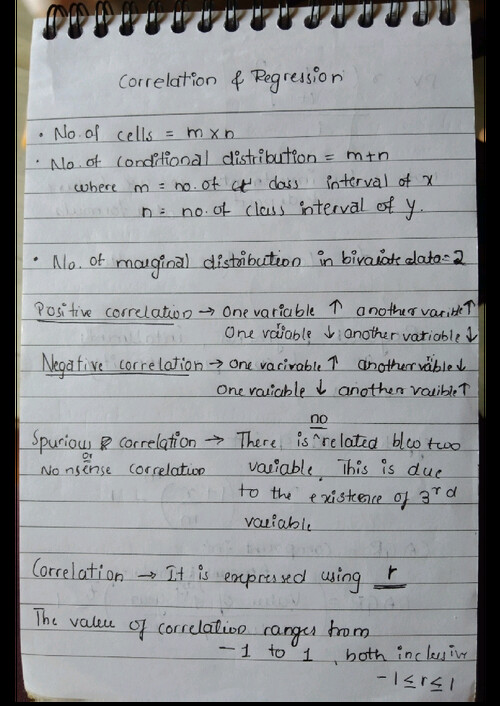 Correlation & Regression
• No. of cells = m x n
• No. of conditional distribution = m+n
where m = no. of class interval of x
n = no. of class interval of y.
• No. of marginal distribution in bivariate data = 2
Positive correlation → One variable ↑ another varible ↑
One variable ↓ another variable ↓
Negative correlation → One variable ↑ another variable ↓
One variable ↓ another varible ↑
no
Spurious correlation → There is ^ related b/w two
or
Nonsense correlation variable. This is due
to the existence of 3rd
variable
Correlation → It is expressed using r
The value of correlation ranges from
-1 to 1, both inclusive
-1 ≤ r ≤ 1